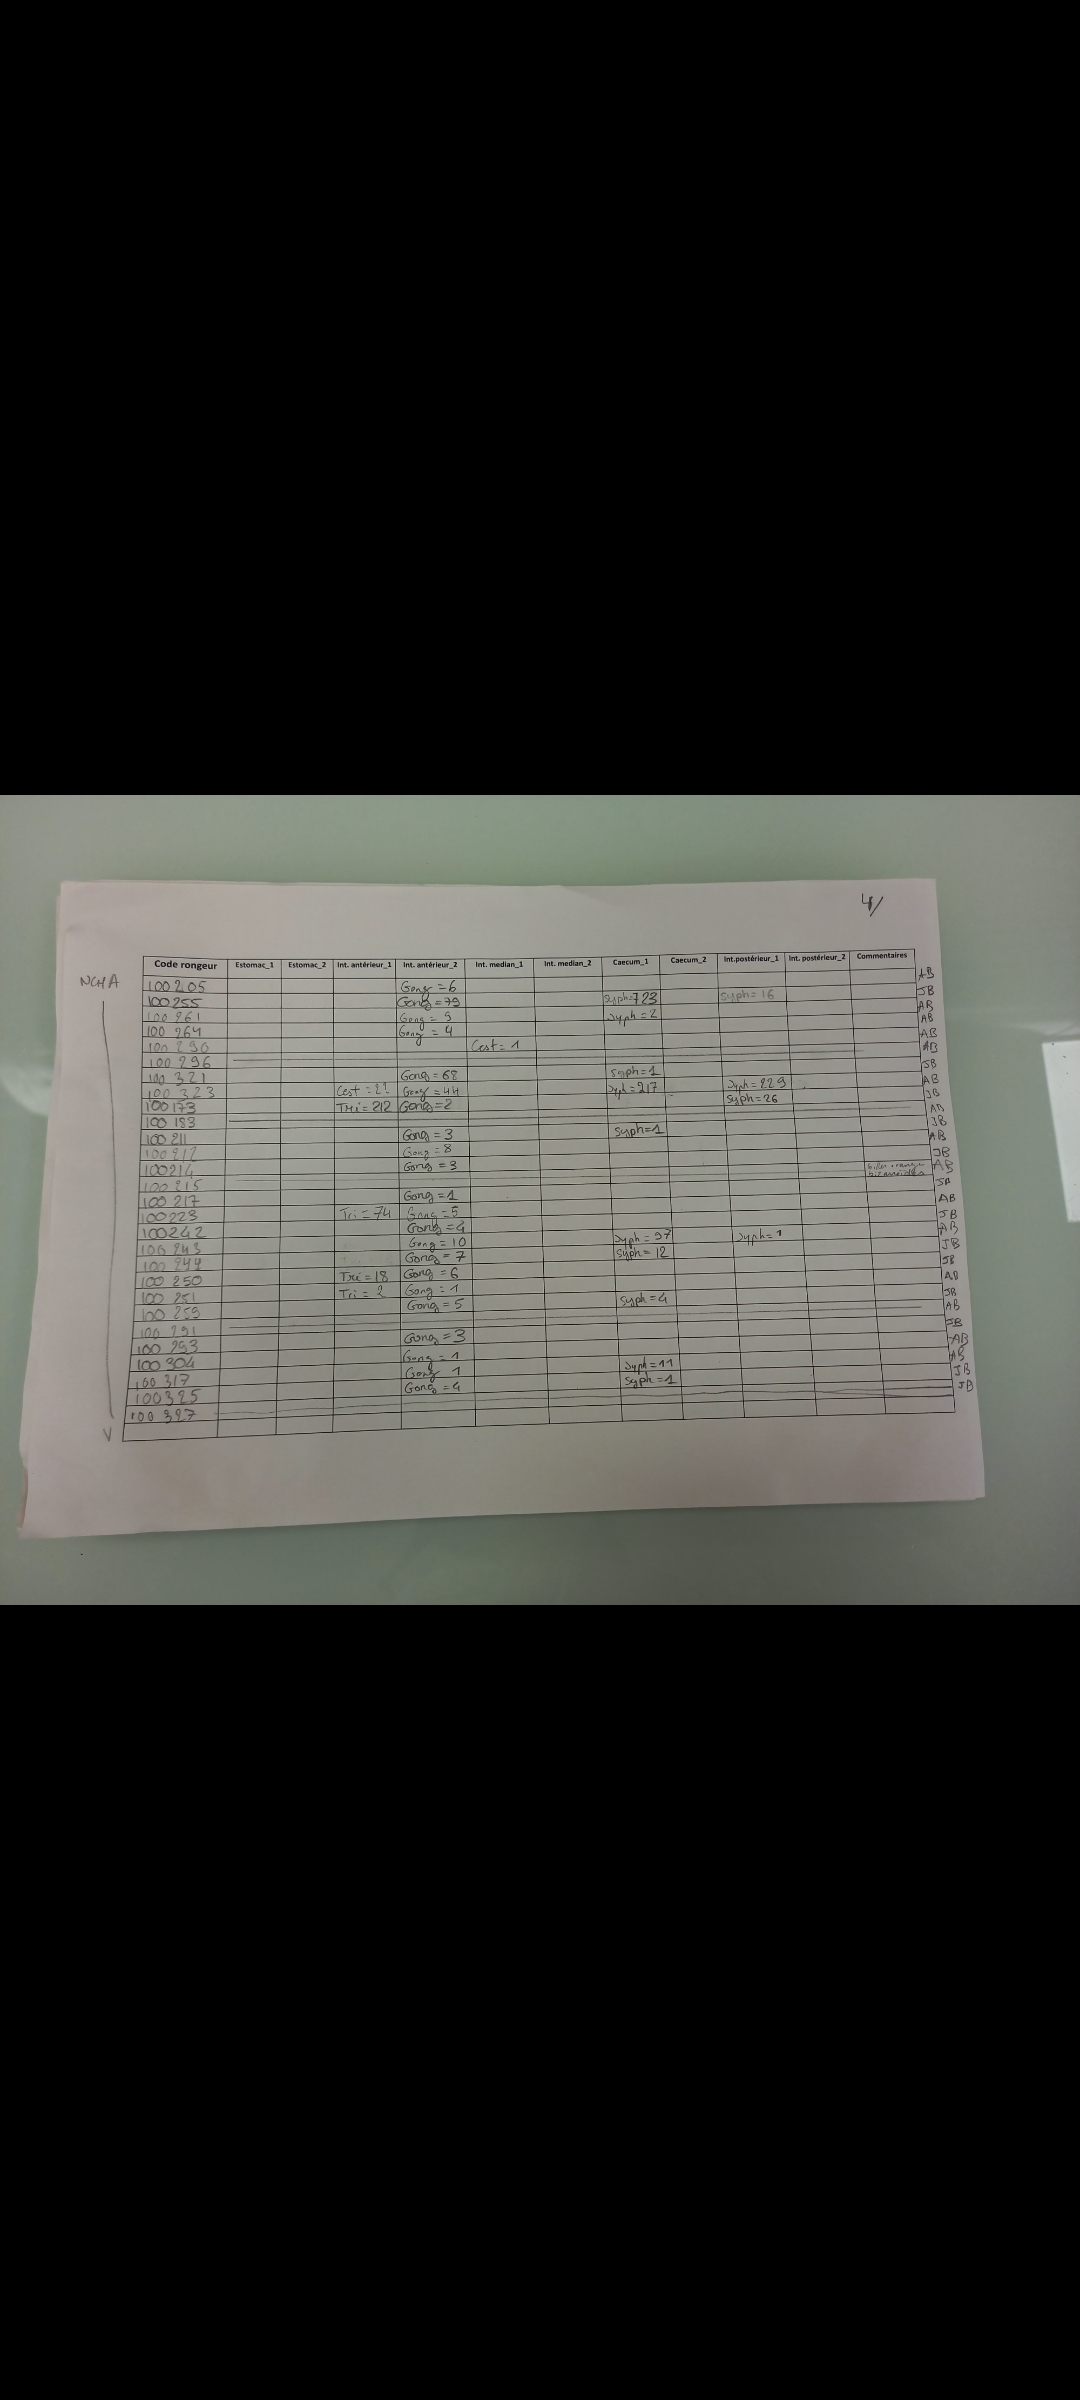 4/
NCHA
Code rongeur Estomac_1 Estomac_2 Int. antérieur_1 Int. antérieur_2 Int. median_1 Int. median_2 Caecum_1 Caecum_2 Int.postérieur_1 Int. postérieur_2 Commentaires
100205 Gong = 6 AB
100255 Gong = 79 Syph=723 Syph=16 JB
100261 Gong = 5 Syph = 2 AB
100264 Gong = 4 AB
100290 Cest = 1 AB
100296 AB
100321 Gong = 68 Syph=1 JB
100323 Cest = Gong = 44 Syph=217 Syph=229 AB
100173 Tri = 212 Gong=2 Syph=26 JB
100183 AB
100211 Gong = 3 Syph=1 JB
100212 Gong = 8 AB
100214 Gong = 3 JB
100215 AB
100217 Gong = 1 JB
100223 Tri = 74 Gong = 5 AB
100242 Gong = 4 JB
100243 Gong = 10 Syph = 97 Syph=1 AB
100244 Gong = 7 Syph = 12 JB
100250 Tri = 18 Gong = 6 JB
100251 Tri = 2 Gong = 1 AB
100259 Gong = 5 Syph = 4 JB
100291 AB
100293 Gong = 3 JB
100304 Gong = 1 AB
100317 Gong 1 Syph = 11 AB
100325 Gong = 4 Syph = 1 JB
100327 JB